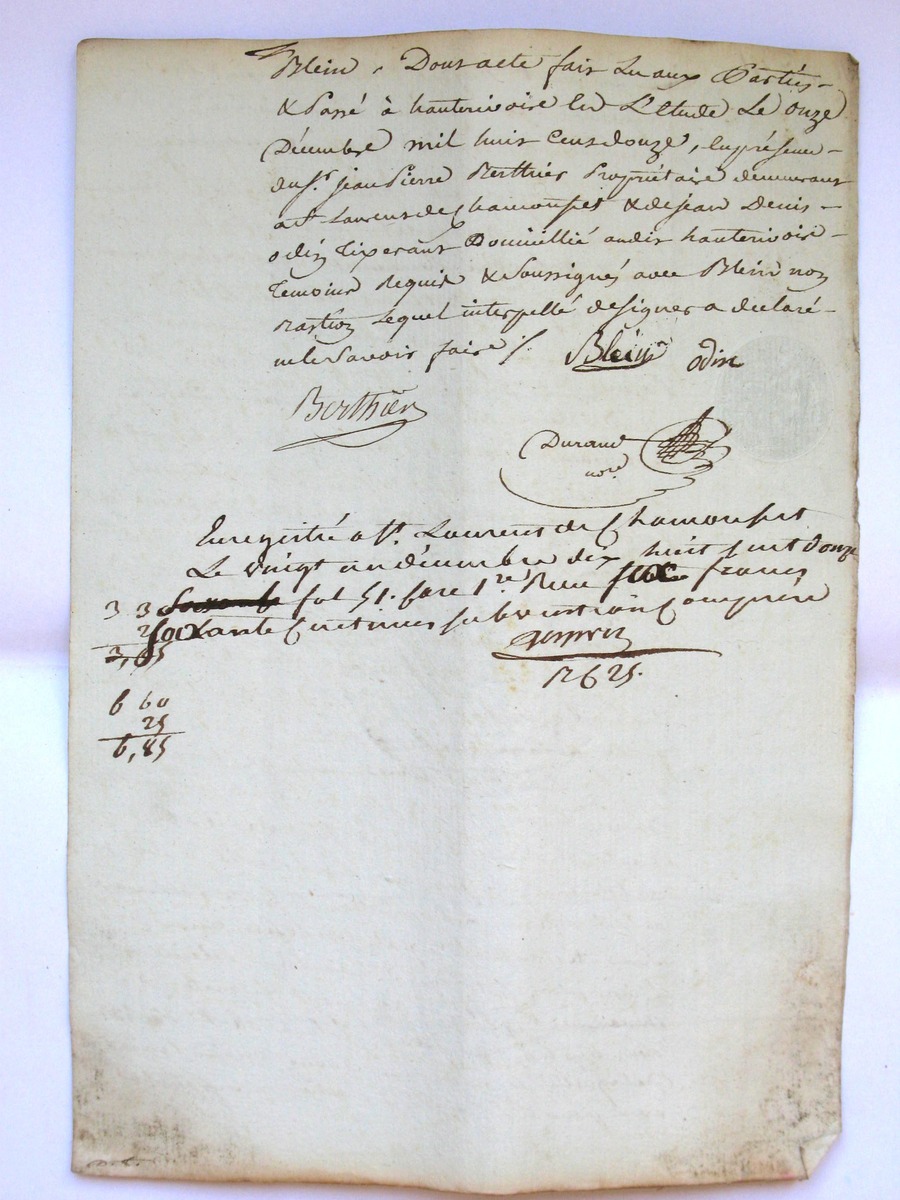 Blein, Dont acte fait Lu aux Parties
& Passé à hauterivoire En L'etude Le onze
Décembre mil huit Cent douze, En présence
du Sr. jean Pierre Berthier Propriétaire demeurant
a St. Laurent de Chamousset & de jean Denis
odin Tixerant Domicillié audit hauterivoire
Temoins Requis & Soussignés avec Blein non
Rastion Lequel interpellé de signer a declaré
ne le Savoir faire /.
Blein odin
Berthier
Durand
nore
Enregistré a St. Laurent de Chamousset
Le vingt un décembre dix huit cent douze
fol 51. face 1re Reçu six francs
Soixante Centimes subvention Comprise
12625.
3 3
2
3,65
6 60
25
6,85